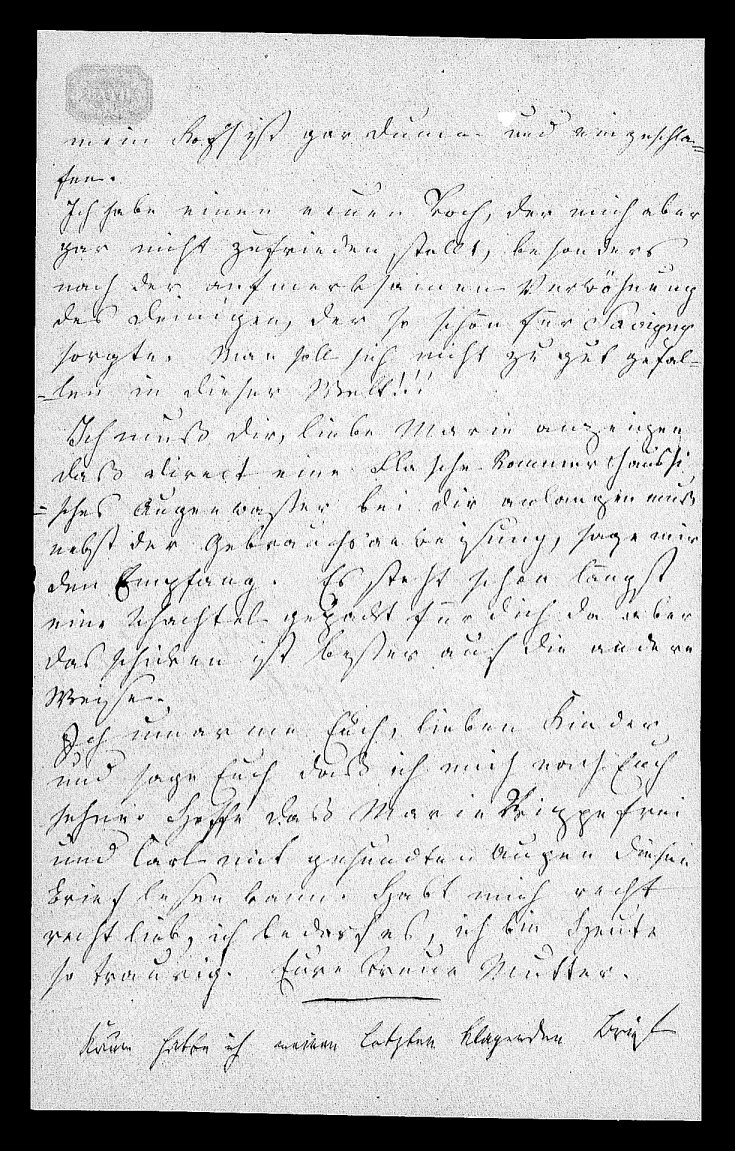 mein Kopf ist gar dumm und eingeschla=
fen.
Ich habe einen neuen Koch, der mich aber
gar nicht zufrieden stellt, besonders
nach der aufmerksamen Verwöhnung
des Deinigen, der so schön für Savigny
sorgte. Man soll sich nicht zu gut gefal=
=len in dieser Welt!!!
Ich muß dir, liebe Marie anzeigen
daß direct eine Flasche Sommerhaussi
=sches Augenwasser bei dir anlangen muß
nebst der Gebrauchsanweisung, sage mir
den Empfang. Es steht schon längst
eine Schachtel gepackt für dich da aber
das schicken ist besser auf die andere
Weise.
Ich umarme Euch, lieben Kinder
und sage Euch daß ich mich nach Euch
sehne. Hoffe daß Marie Grippefrei
und Carl mit gesundten Augen diesen
Brief lesen kann. Habt mich recht
recht lieb, ich bedarf es, ich bin Heute
so traurig. Eure treue Mutter.
Kaum hatte ich meinen letzten klagenden Brief